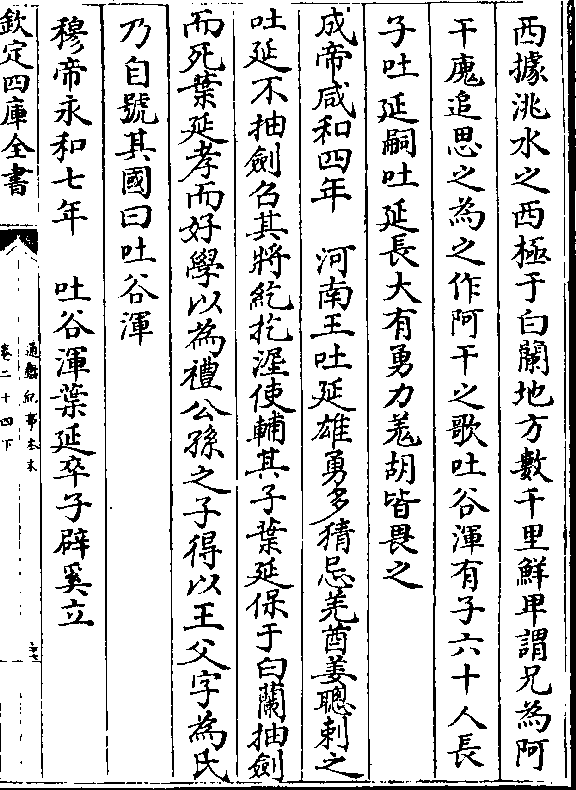 西據洮水之西極于白蘭地方數千里鮮卑謂兄為阿
干廆追思之為之作阿干之歌吐谷渾有子六十人長
子吐延嗣吐延長大有勇力羌胡皆畏之
成帝咸和四年 河南王吐延雄勇多猜忌羌酋姜聰刺之
吐延不抽劍召其將紇扢渥使輔其子葉延保于白蘭抽劍
而死葉延孝而好學以為禮公孫之子得以王父字為氏
乃自號其國曰吐谷渾
穆帝永和七年 吐谷渾葉延卒子辟奚立
欽定四庫全書
通鑑紀事本末
卷二十四下